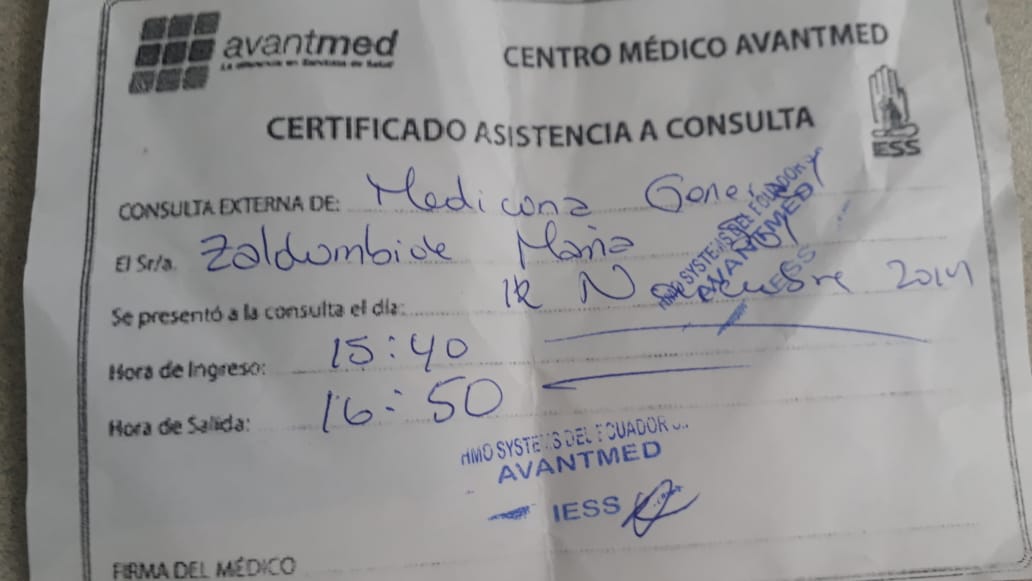 avantmed
La diferencia en Servicios de Salud
CENTRO MÉDICO AVANTMED
CERTIFICADO ASISTENCIA A CONSULTA
IESS
CONSULTA EXTERNA DE: Medicina General
El Sr/a. Zaldumbide Maria
Se presentó a la consulta el día: 12
HMO SYSTEMS DEL ECUADOR
AVANTMED
IESS
Hora de Ingreso: 15:40
Hora de Salida: 16:50
HMO SYSTEMS DEL ECUADOR
AVANTMED
IESS
FIRMA DEL MÉDICO